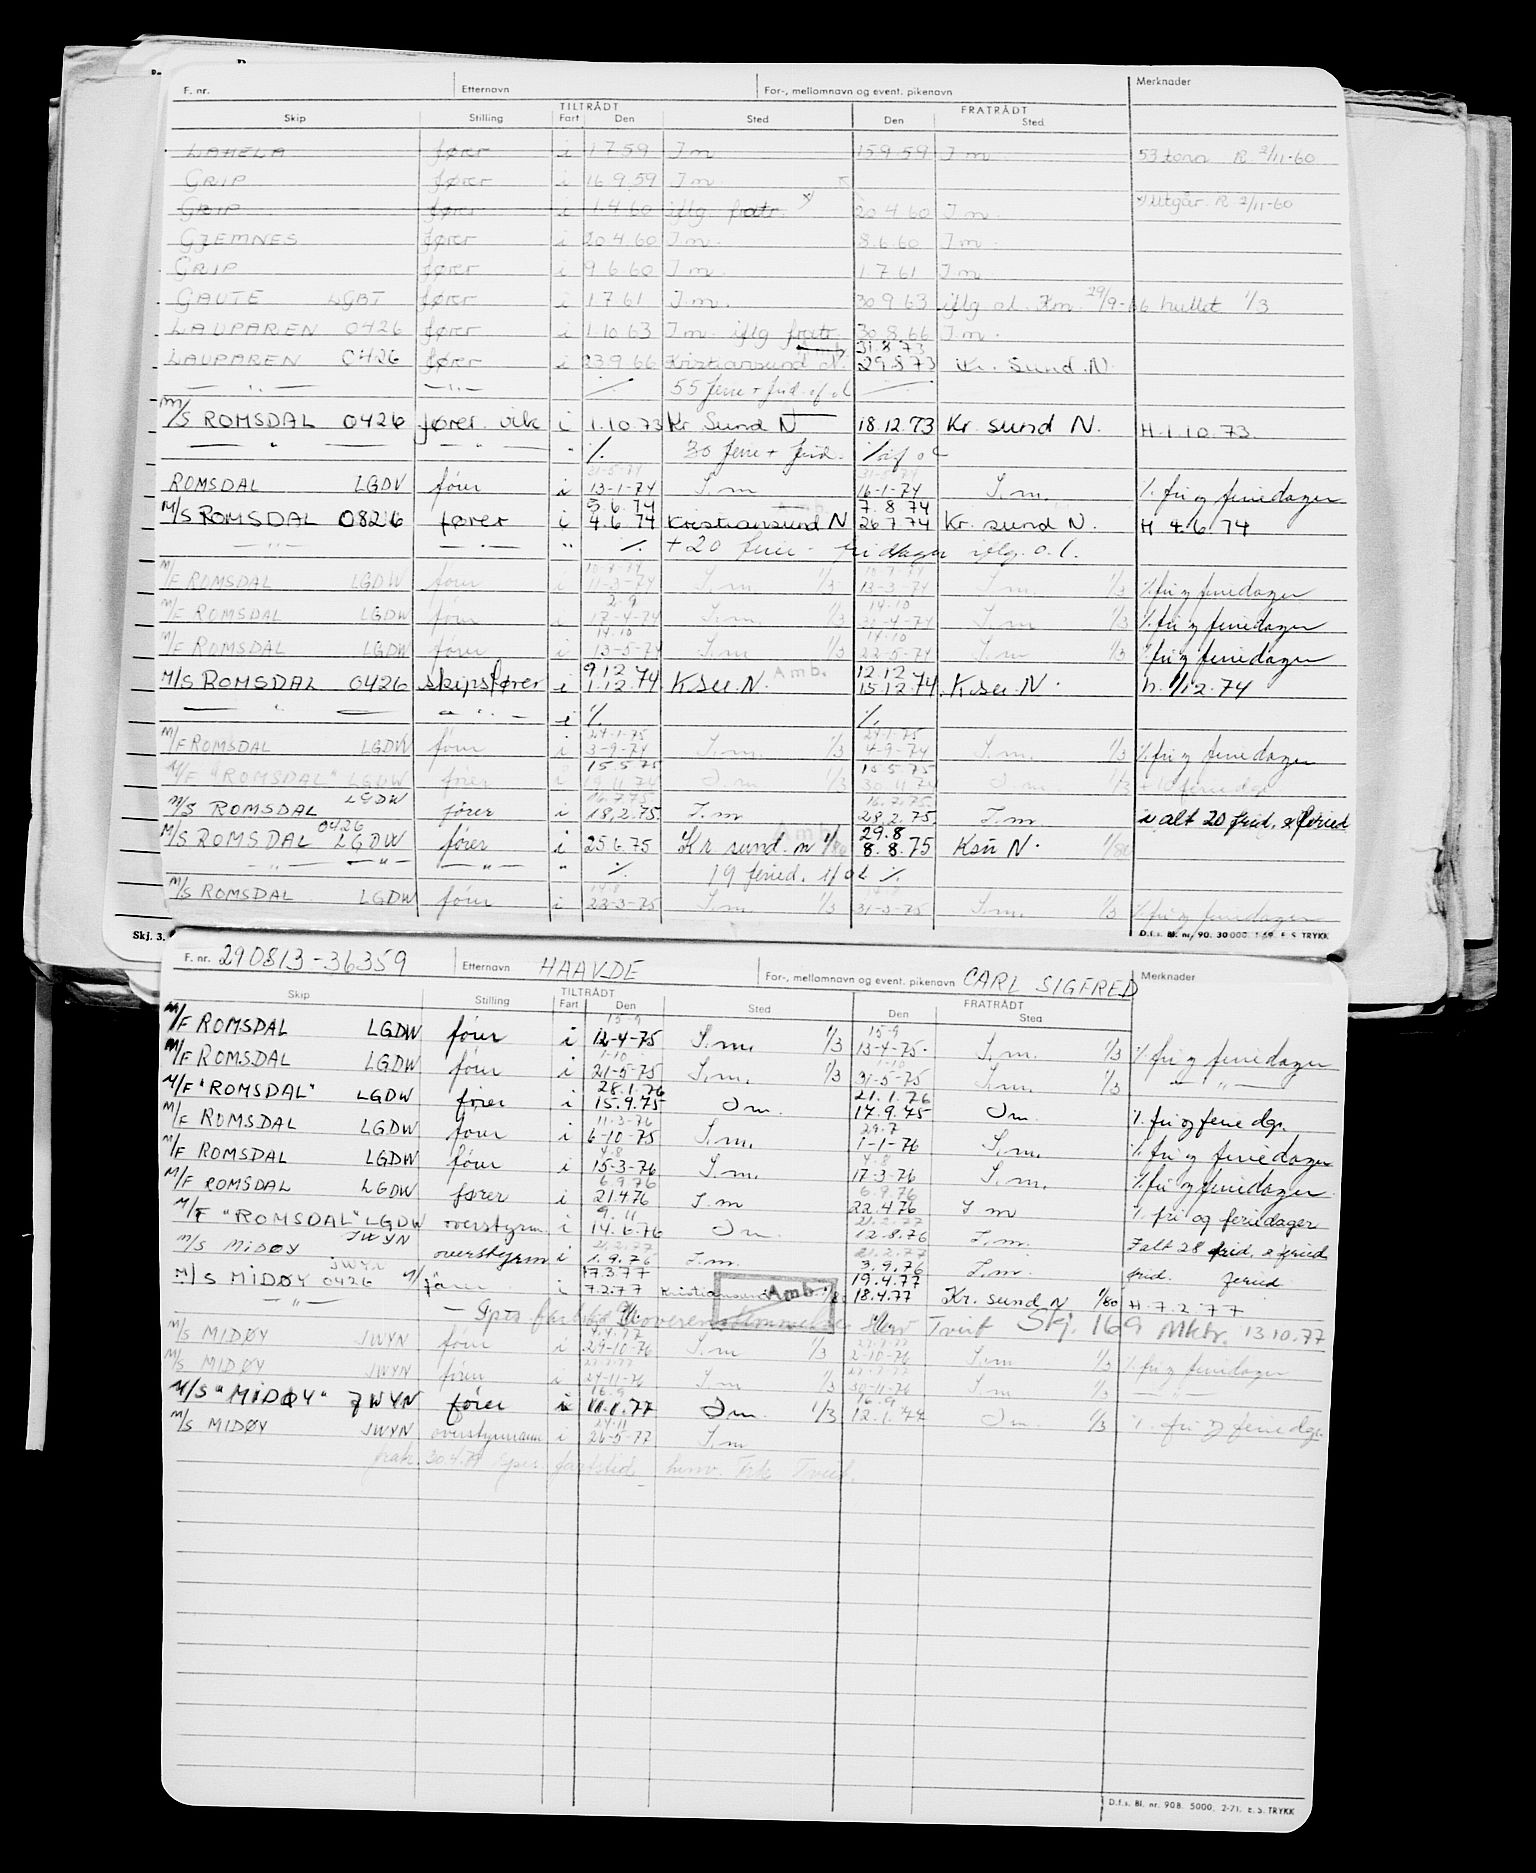 F. nr. Etternavn For-, mellomnavn og event. pikenavn Merknader
TILTRÅDT FRATRÅDT
Skip Stilling Fart Den Sted Den Sted
LAHELA fører i 1.7.59 I m 15.9.59 I m 53 tonn R. 2/11-60
GRIP fører i 16.9.59 I m.
GRIP fører i 1.4.60 iflg. fratr. 20.4.60 I m. Utgår. R 2/11-60
GJEMNES fører i 20.4.60 I m. 8.6.60 I m.
GRIP fører i 9.6.60 I m. 1.7.61 I m
GAUTE LGBT fører i 1.7.61 I m. 30.9.63 iflg. ol. Km. 29/9-66 hullet 1/3
LAUPAREN 0426 fører i 1.10.63 I m. iflg fratr. 30.8.66 I m.
31.8.73
LAUPAREN 0426 fører i 23.9.66 Kristiansund N. 29.8.73 Kr. Sund. N.
— " — — " — 55 ferie + frid.
M/S ROMSDAL 0426 fører vik i 1.10.73 Kr. Sund N 18.12.73 Kr. sund N. H. 1.10.73
— " — " " % 30 ferie + frid. %
31-5-74
ROMSDAL LGDW fører i 13-1-74 I. m 16-1-74 I. m. % fri og feriedager
5.6.74 7.8.74
M/S ROMSDAL 0826 fører i 4.6.74 Kristiansund N 26.7.74 Kr. sund N. H. 4.6.74
— " — — " — " % + 20 ferie - fridager iflg. o.l.
M/F ROMSDAL LGDW fører i 11-3-74 I. m 1/3 13-3-74 I. m 1/3 % fri og feriedager
2.9 14.10
M/F ROMSDAL LGDW fører i 17-4-74 I. m. 1/3 I. m. 1/3 % fri og feriedager
14.10 14.10
M/F ROMSDAL LGDW fører i 13-5-74 I. m 1/3 22-5-74 I. m 1/3 % fri og feriedager
9.12 Amb. 12.12
M/S ROMSDAL 0426 skipsfører i 1.12.74 K.su. N. 15.12.74 K.su. N. h. 1/12.74
— " — — " — i % %
24-1-75 24-1-75
M/F ROMSDAL LGDW fører i 3-9-74 I. m. 1/3 4-9-74 I. m. 1/3 % fri og feriedager
15.5.75 15.5.75
M/F "ROMSDAL" LGDW fører i 19.11.74 I m 1/3 30.11.74 I m 1/3
16.7.75 16.7.75
M/S ROMSDAL LGDW fører i 18.2.75 I. m 28.2.75 I. m i alt 20 frid. & feried
0426 Amb. 29.8
M/S ROMSDAL LGDW fører i 25.6.75 Kr. sund. n 1/80 8.8.75 Ksu N. 1/80
" — " — — " — " % 19 feried. %
M/S ROMSDAL LGDW fører i 23-3-75 I. m. 1/3 31-3-75 I. m. 1/3 % fri og feriedager
Skj. 3. D.f.s. Bl. nr. 90. 30 000. 1-69. E. S. TRYKK
F. nr. 290813-36359 Etternavn HAAVDE For-, mellomnavn og event. pikenavn CARL SIGFRED Merknader
TILTRÅDT FRATRÅDT
Skip Stilling Fart Den Sted Den Sted
15-9 15-9
M/F ROMSDAL LGDW fører i 12-4-75 I. m. 1/3 13-4-75. I. m. 1/3 % fri og feriedager
1-10 1-10
M/F ROMSDAL LGDW fører i 21-5-75 I. m. 1/3 31-5-75 I. m. 1/3 — " —
28.1.76 21.1.76
M/F "ROMSDAL" LGDW fører i 15.9.75 I m. 17.9.75 I m. % fri og ferie dgr.
11-3-76 29.7
M/F ROMSDAL LGDW fører i 6-10-75 I. m. 1-1-76 I. m. % fri og feriedager
4.8 4.8
M/F ROMSDAL LGDW fører i 15-3-76 I. m. 17-3-76 I. m. % fri og feriedager
6.9.76 6.9.76
M/F ROMSDAL LGDW fører i 21.4.76 I. m 22.4.76 I m % fri og feriedager
9.11 21.2.77
M/F "ROMSDAL" LGDW overstyrm. i 14.6.76 I m. 12.8.76 I. m. I alt 28 frid. & feried
21.2.77 21.2.77
M/S MIDØY JWYN overstyrm i 1.9.76 I. m. 3.9.76 I. m frid. feried
17.3.77 19.4.77
M/S MIDØY 0426 JWYN fører i 7.2.77 Kristiansund Amb. 1/80 18.4.77 Kr. sund N 1/80 H. 7.2.77
— " — — Spes. fartstid Uoverensstemmelse Tveit Skj. 169 Mktr. 13.10.77
4.4.77
M/S MIDØY JWYN fører i 29-10-76 I. m 1/3 2-10-76 I. m 1/3 % fri og feriedager
M/S MIDØY JWYN fører i 24-11-76 I. m 1/3 30-11-76 I. m 1/3 — " —
16.9 16.9
M/S "MIDØY" JWYN fører i 11.1.77 I m. 1/3 12.1.77 I m. 1/3 % fri og ferie dgr.
24.11
M/S MIDØY JWYN overstyrmann i 26-5-77 I. m
fratr. 30.4.79 spes. fartstid henv. Tveit.
D.f.s. Bl. nr. 90B. 5000. 2-71. E. S. TRYKK